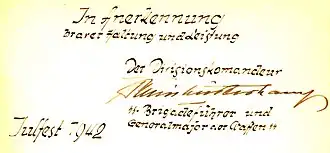 In Anerkennung
braver Haltung und Leistung
Der Divisionskomandeur
ᛋᛋ Brigadeführer und
Generalmajor der Waffen ᛋᛋ
Julfest 1942